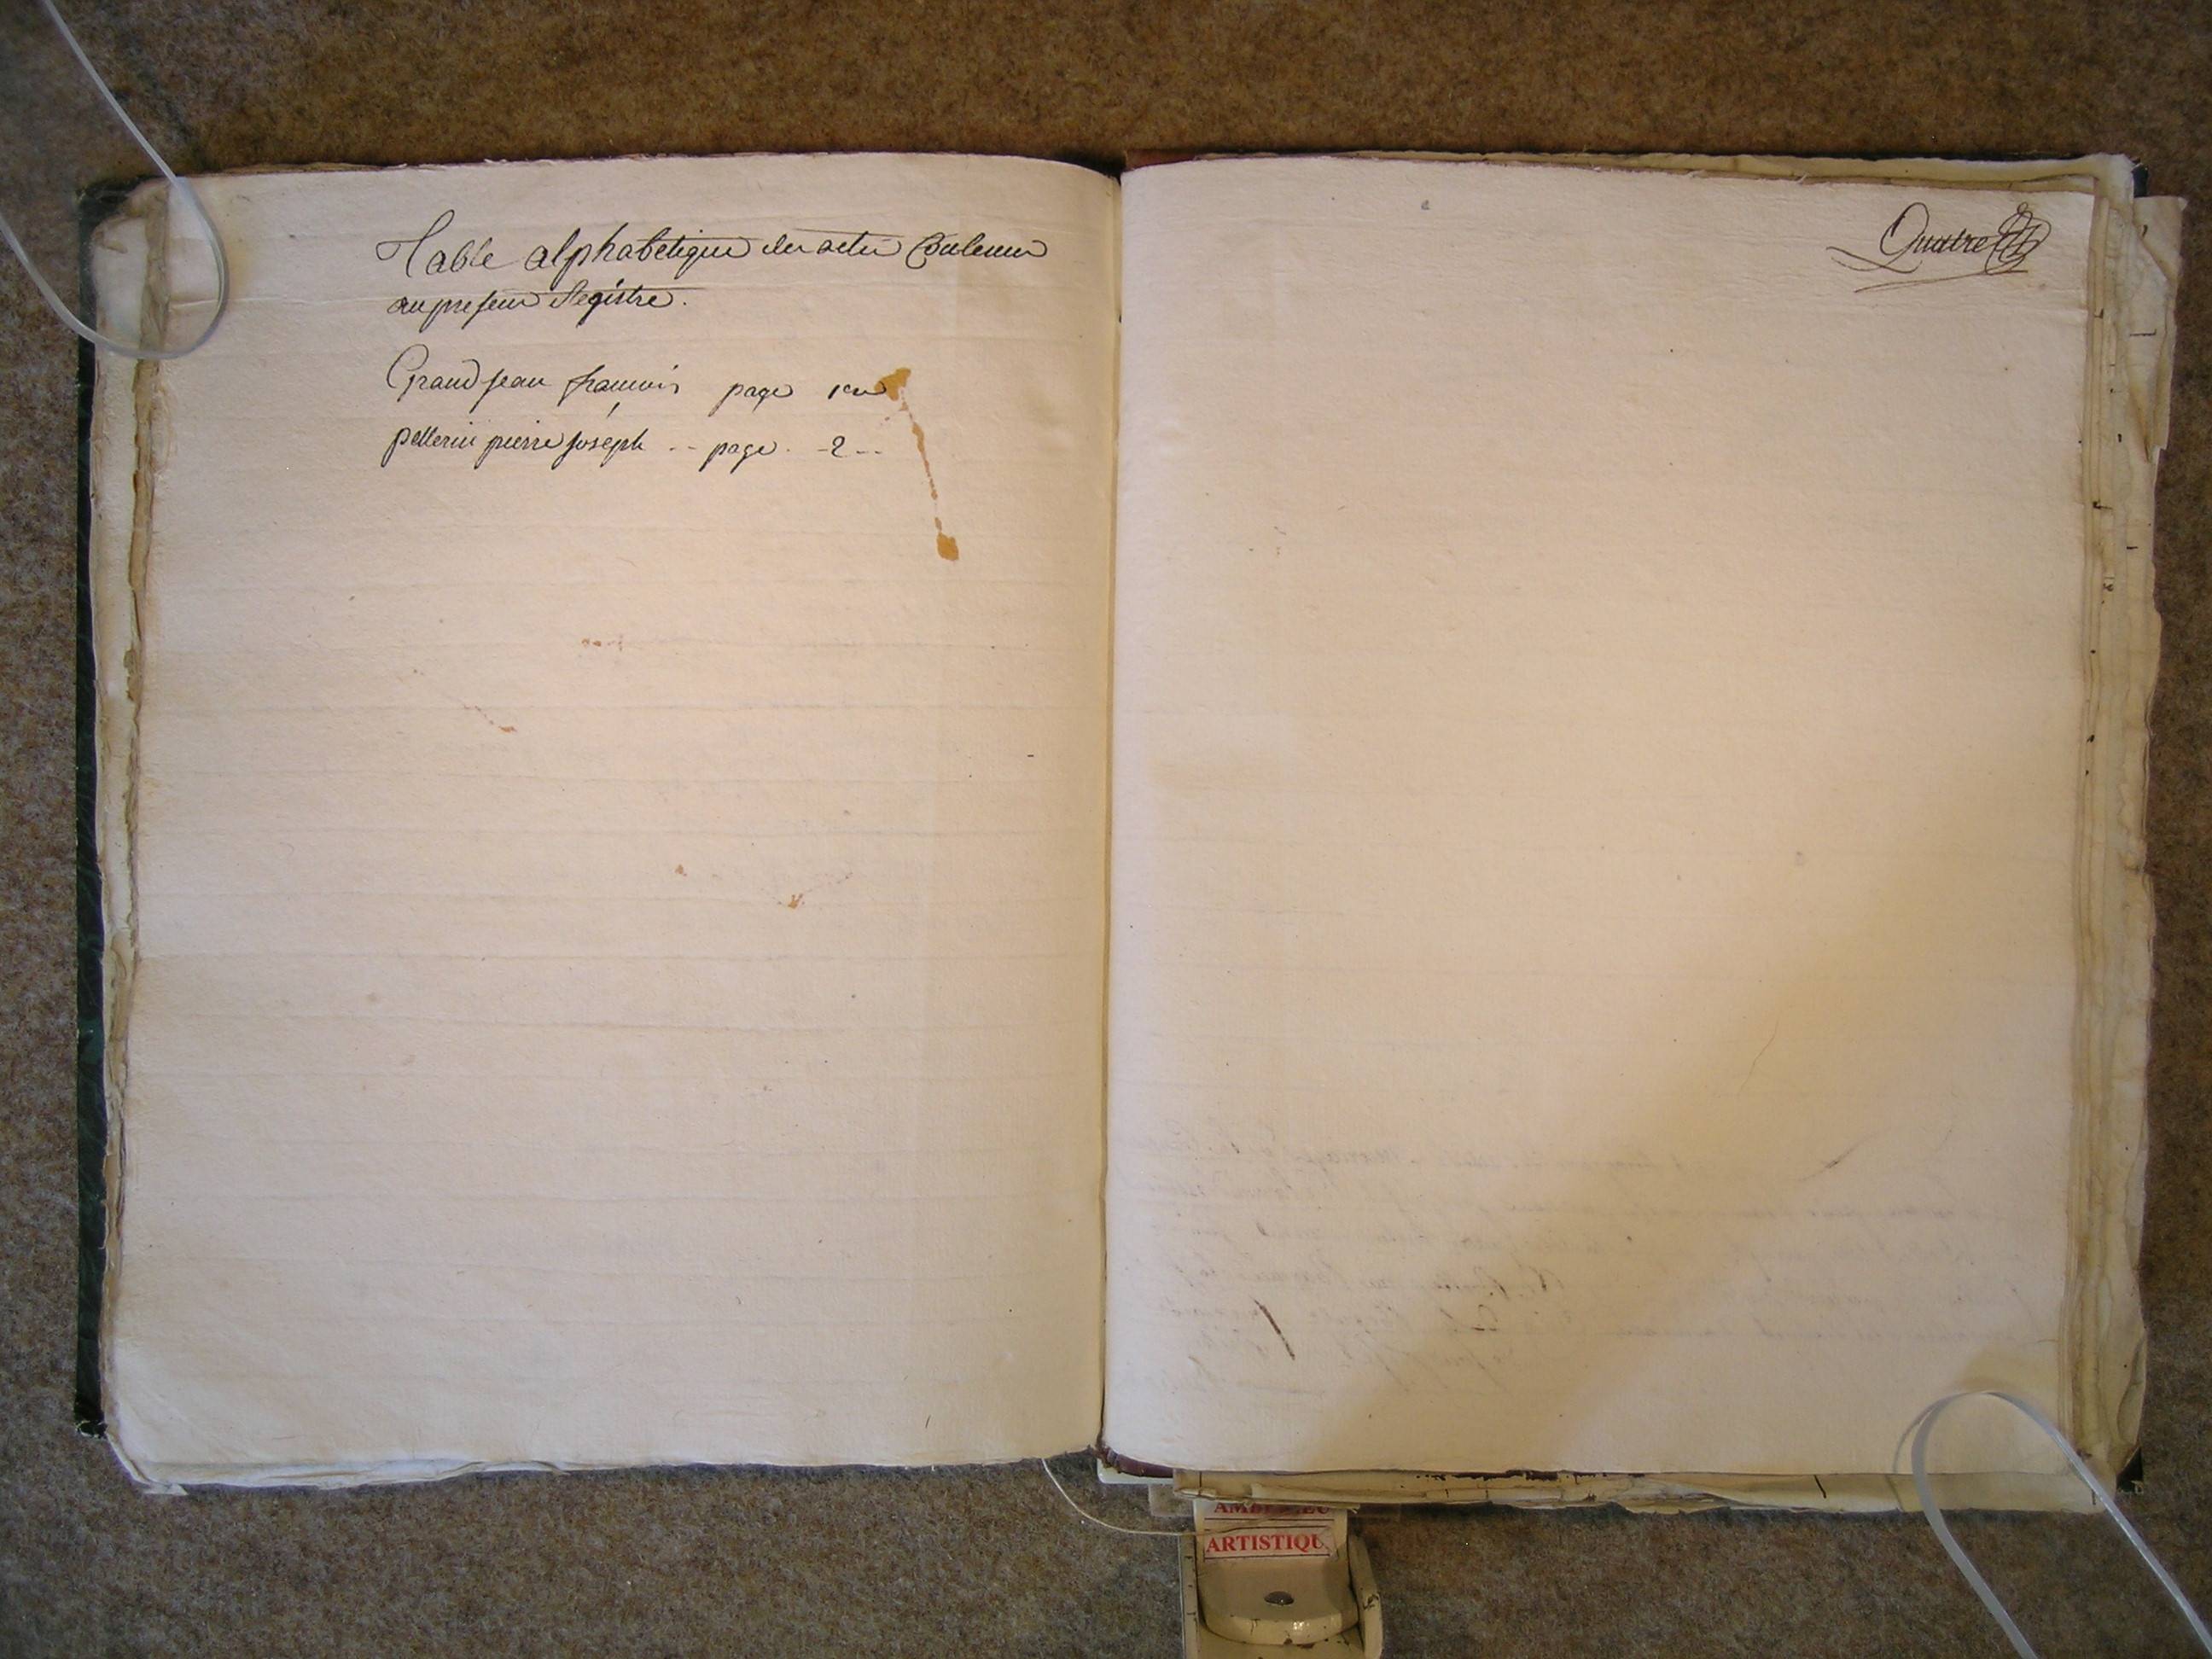 Table alphabetique des actes Contenus
au present Registre.
Grandjean françois page 1ere
pellerin pierre joseph -- page. -2--
Quatre
ARTISTIQU